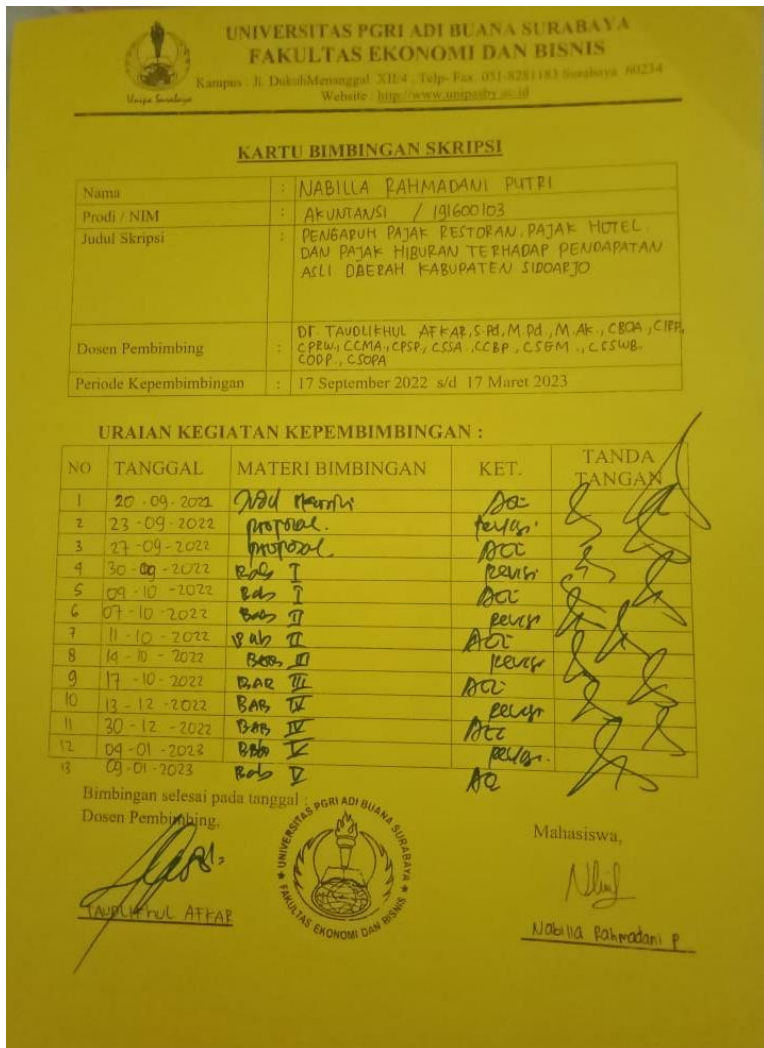 UNIVERSITAS PGRI ADI BUANA SURABAYA
FAKULTAS EKONOMI DAN BISNIS
Kampus : Jl. DukuhMenanggal XII/4 , Telp- Fax. 031-8281183 Surabaya 60234
Website : http://www.unipasby.ac.id
Unipa Surabaya
KARTU BIMBINGAN SKRIPSI
Nama : NABILLA RAHMADANI PUTRI
Prodi / NIM : AKUNTANSI / 191600103
Judul Skripsi : PENGARUH PAJAK RESTORAN, PAJAK HOTEL
DAN PAJAK HIBURAN TERHADAP PENDAPATAN
ASLI DAERAH KABUPATEN SIDOARJO
Dosen Pembimbing : Dr. TAUDLIKHUL AFKAR, S.Pd, M.Pd., M.Ak., CBOA, CIRP,
CPRW., CCMA., CPSP., CSSA., CCBP., CSEM., CSSWB.
CODP., CSOPA
Periode Kepembimbingan : 17 September 2022 s/d 17 Maret 2023
URAIAN KEGIATAN KEPEMBIMBINGAN :
NO TANGGAL MATERI BIMBINGAN KET. TANDA TANGAN
1 20-09-2022 Acc
2 23-09-2022 proposal. Revisi.
3 27-09-2022 proposal Acc
4 30-09-2022 Bab I Revisi
5 04-10-2022 Bab I Acc
6 07-10-2022 Bab II Revisi
7 11-10-2022 Bab II Acc
8 14-10-2022 Bab III Revisi
9 17-10-2022 BAB III Acc
10 13-12-2022 BAB IV Revisi
11 30-12-2022 BAB IV Acc
12 04-01-2023 Bab V Revisi.
13 09-01-2023 Bab V Acc
Bimbingan selesai pada tanggal :
Dosen Pembimbing,
Mahasiswa,
UNIVERSITAS PGRI ADI BUANA SURABAYA
FAKULTAS EKONOMI DAN BISNIS
TAUDLIKHUL AFKAR
Nabilla Rahmadani P